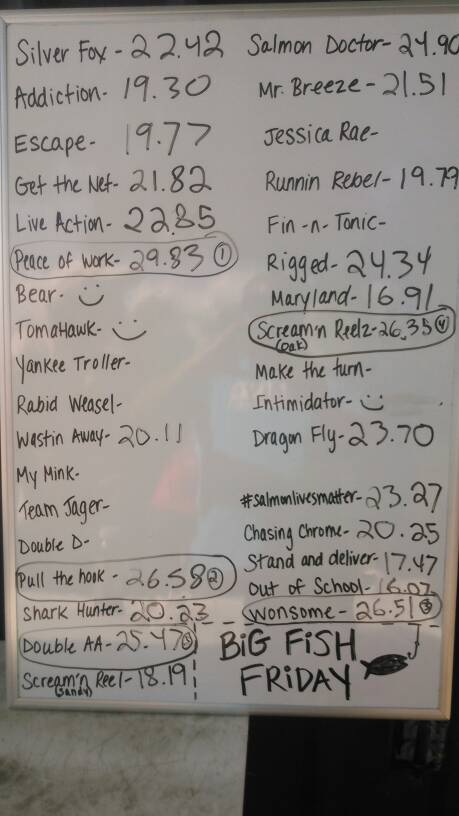 Silver Fox - 22.42
Addiction- 19.30
Escape- 19.77
Get the Net- 21.82
Live Action- 22.85
Peace of Work- 29.83 ①
Bear-
TomaHawk-
Yankee Troller-
Rabid Weasel-
Wastin Away- 20.11
My Mink-
Team Jager-
Double D-
Pull the hook - 26.58 ②
Shark Hunter- 20.23
Double AA- 25.47 ⑤
Scream'n Reel- 18.19
(Sandy)
Salmon Doctor- 24.90
Mr. Breeze- 21.51
Jessica Rae-
Runnin Rebel- 19.79
Fin-n-Tonic-
Rigged- 24.34
Maryland- 16.91
Scream'n Reelz- 26.35 ④
(Oak)
Make the turn-
Intimidator-
Dragon Fly- 23.70
#salmonlivesmatter- 23.27
Chasing Chrome- 20.25
Stand and deliver- 17.47
Out of School- 16.07
Wonsome - 26.51 ③
BiG FiSH
FRiDAY